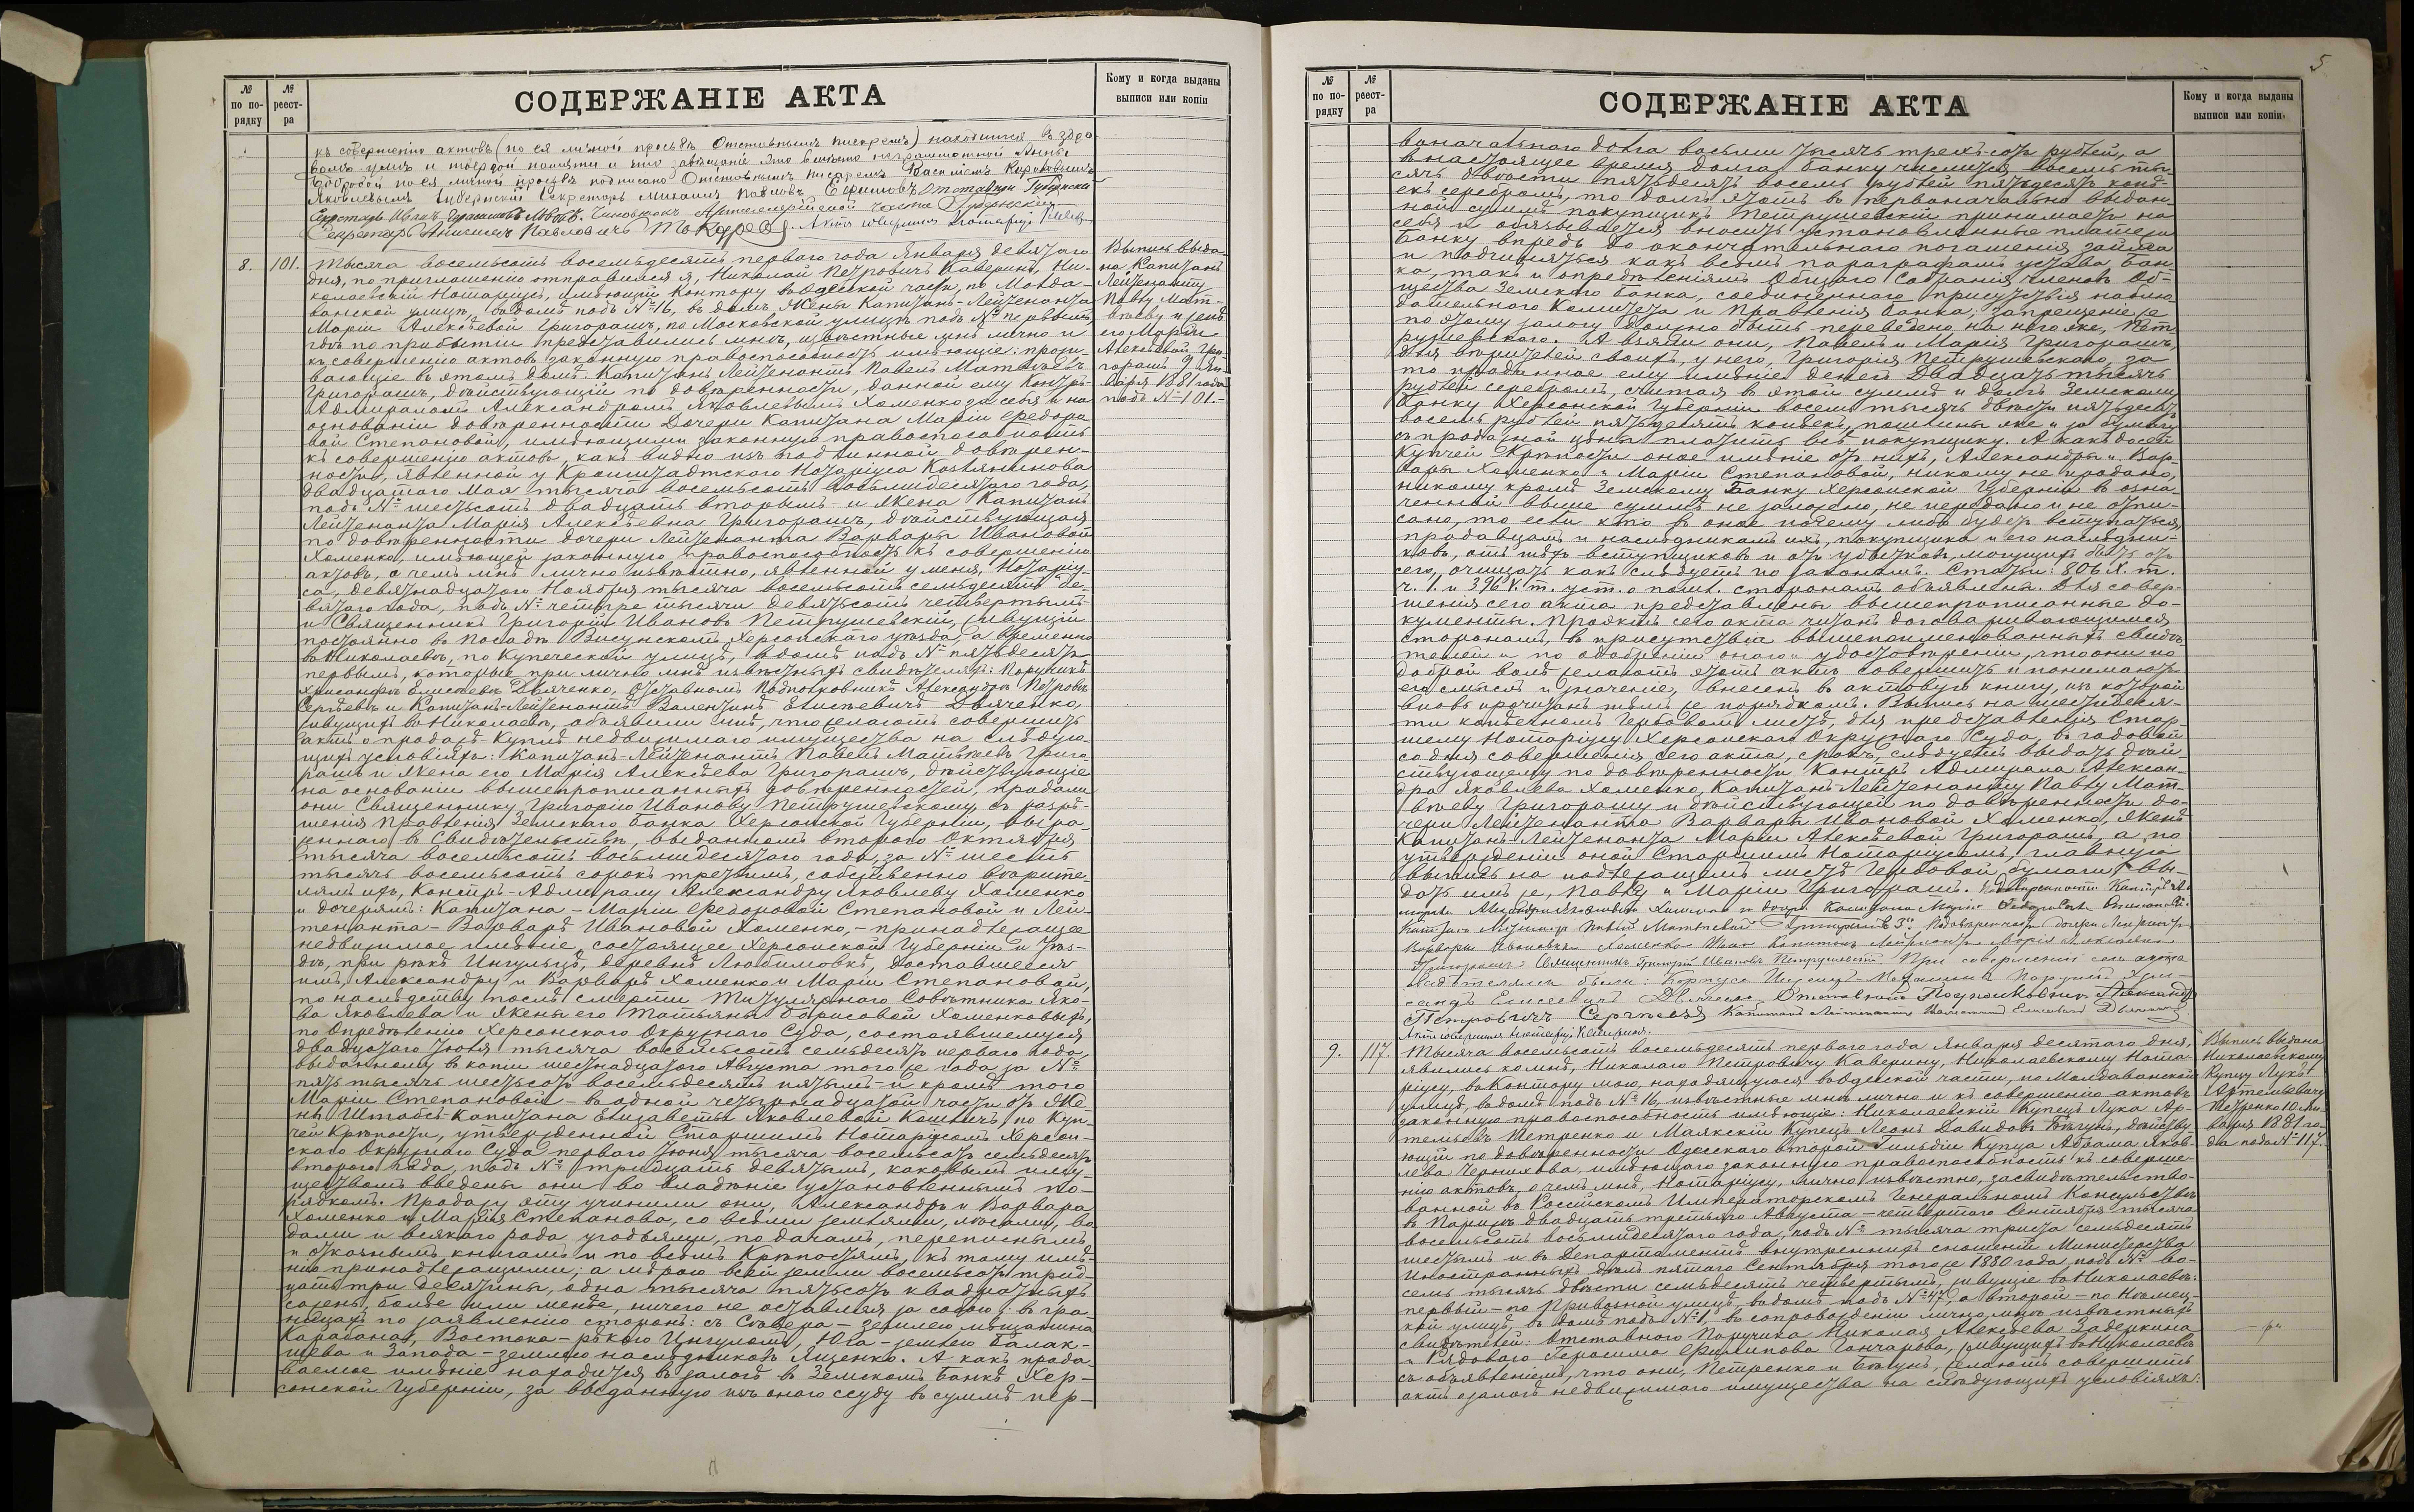 № по по-рядку
№ реест-ра
СОДЕРЖАНІЕ АКТА
Кому и когда выданы выписи или копіи
къ совершенію актовъ (по ея личной просьбѣ Отставнымъ писаремъ) находится въ здра-
вомъ умѣ и твердой памяти и что завѣщаніе это вмѣсто неграмотной Анны
по ея личной просьбѣ подписано Отставнымъ писаремъ Василіемъ
Яковлевымъ Губернскій Секретарь Михаилъ Павловъ Ефимовъ Отставной Губернскій
Секретарь Иванъ Чиновникъ Артиллерійской части Губернскій
Секретарь Павловичъ Токаревъ. Актъ совершилъ Нотаріусъ
8. 101. Тысяча восемьсотъ восемьдесятъ перваго года Января девятаго
дня, по приглашенію отправился я, Николай Петровичъ Каверинъ, Ни-
колаевскій Нотаріусъ, имѣющій Контору въ Одесской части, по Молда-
ванской улицѣ, въ домѣ подъ № 16, въ домъ Жены Капитанъ-Лейтенанта
Маріи Алексѣевой Григорашъ, по Московской улицѣ подъ № первымъ,
гдѣ по прибытіи представились мнѣ, извѣстные мнѣ лично и
къ совершенію актовъ законную правоспособность имѣющіе: прожи-
вающіе въ этомъ домѣ: Капитанъ Лейтенантъ Павелъ Матвѣевъ
Григорашъ, дѣйствующій по довѣренности, данной ему Контръ-
Адмираломъ Александромъ Яковлевымъ Хоменко за себя и на
основаніи довѣренности Дочери Капитана Маріи Ѳедоро-
вой Степановой, имѣющими законную правоспособность
къ совершенію актовъ, какъ видно изъ подлинной довѣрен-
ности, явленной у Кронштадтскаго Нотаріуса Козлянинова
двадцатаго Мая тысяча восемьсотъ восьмидесятаго года,
подъ № шестьсотъ двадцать вторымъ и Жена Капитанъ
Лейтенанта Марія Алексѣевна Григорашъ, дѣйствующая
по довѣренности дочери Лейтенанта Варвары Ивановой
Хоменко, имѣющей законную правоспособность къ совершенію
актовъ, о чемъ мнѣ лично извѣстно, явленной у меня, Нотаріу-
са, девятнадцатаго Ноября тысяча восемьсотъ семьдесятъ де-
вятаго года, подъ № четыре тысячи девятьсотъ четвертымъ
и Священникъ Григорій Ивановъ Петрушевскій, живущій
постоянно въ посадѣ Висунскомъ, Херсонскаго уѣзда, а временно
въ Николаевѣ, по Купеческой улицѣ, въ домѣ подъ № пятьдесятъ
первымъ, которые при лично мнѣ извѣстныхъ свидѣтеляхъ: Поручикѣ
Хрисанфѣ Елисѣевѣ Дьяченко, Отставномъ Подполковникѣ Александрѣ Петровѣ
Сергѣевѣ и Капитанъ-Лейтенантѣ Валентинѣ Елисѣевичѣ Дьяченко,
живущихъ въ Николаевѣ, объявили мнѣ, что желаютъ совершить
актъ о продажѣ-куплѣ недвижимаго имущества на слѣдую-
щихъ условіяхъ: Капитанъ-Лейтенантъ Павелъ Матвѣевъ Григо-
рашъ и Жена его Марія Алексѣева Григорашъ, дѣйствующіе
на основаніи вышепрописанныхъ довѣренностей, продали
они Священнику Григорію Иванову Петрушевскому, съ разрѣ-
шенія Правленія Земскаго Банка Херсонской Губерніи, выра-
женнаго въ Свидѣтельствѣ, выданномъ второго Октября
тысяча восемьсотъ восьмидесятаго года, за № шесть
тысячъ восемьсотъ сорокъ третьимъ, собственно довѣрите-
лямъ ихъ, Контръ-Адмиралу Александру Яковлеву Хоменко
и дочерямъ: Капитана - Маріи Ѳедоровой Степановой и Лей-
тенанта - Варварѣ Ивановой Хоменко, - принадлежащее
недвижимое имѣніе, состоящее Херсонской Губерніи и Уѣз-
дѣ, при рѣкѣ Ингульцѣ, деревнѣ Любимовкѣ, доставшееся
имъ, Александру и Варварѣ Хоменко и Маріи Степановой,
по наслѣдству послѣ смерти Титулярнаго Совѣтника Яко-
ва Яковлева и Жены его Татьяны Борисовой Хоменковыхъ,
по Опредѣленію Херсонскаго Окружнаго Суда, состоявшемуся
двадцатаго Іюля тысяча восемьсотъ семьдесятъ перваго года,
выданному въ копіи шестнадцатаго Августа того же года за №
пять тысячъ шестьсотъ восемьдесятъ пятымъ и кромѣ того
Маріи Степановой - въ одной четырнадцатой части отъ Же-
ны Штабсъ-Капитана Елизаветы Яковлевой Кошичъ, по Куп-
чей Крѣпости, утвержденной Старшимъ Нотаріусомъ Херсон-
скаго Окружнаго Суда перваго Іюня тысяча восемьсотъ семьдесятъ
второго года, подъ № тридцать девятымъ, каковымъ иму-
ществомъ введены они во владѣніе установленнымъ по-
рядкомъ. Продажу эту учинили они, Александръ и Варвара
Хоменко и Марія Степанова, со всѣми землями, лѣсами, во-
дами и всякаго рода угодьями, по дачамъ, переписнымъ
и отказнымъ книгамъ и по всѣмъ Крѣпостямъ, къ тому имѣ-
нію принадлежащими; а мѣрою всей земли восемьсотъ трид-
цать три десятины, одна тысяча пятьсотъ квадратныхъ
сажень, болѣе или менѣе, ничего не оставляя за собою; въ гра-
ницахъ по заявленію сторонъ: съ Сѣвера - землею мѣщанина
Карабана, Востока - рѣкою Ингуломъ, Юга - землею Балак-
щева и Запада - землею наслѣдниковъ Яценко. А какъ прода-
ваемое имѣніе находится въ залогѣ въ Земскомъ Банкѣ Хер-
сонской Губерніи, за выданную изъ онаго ссуду въ суммѣ пер-
Выпись выда-
на Капитанъ
Лейтенанту
Павлу Мат-
вѣеву и женѣ
его Маріи
Алексѣевой Гри-
горашъ 9 Ян-
варя 1881 года
подъ № 101.-
5
№ по по-рядку
№ реест-ра
СОДЕРЖАНІЕ АКТА
Кому и когда выданы выписи или копіи
воначальнаго долга восьми тысячъ трехъ-сотъ рублей, а
въ настоящее время долга Банку числится восемь ты-
сячъ двѣсти пятьдесятъ восемь рублей пятьдесятъ копѣ-
екъ серебромъ, то долгъ этотъ въ первоначально выдан-
ной суммѣ покупщикъ Петрушевскій принимаетъ на
себя и обязывается вносить установленные платежи
Банку впредь до окончательнаго погашенія займа
и подчиняться какъ всѣмъ параграфамъ устава Бан-
ка, такъ и опредѣленіямъ Общаго Собранія членовъ Об-
щества Земскаго Банка, соединеннаго присутствія наблю-
дательнаго Комитета и Правленія Банка; запрещеніе же
по этому залогу должно быть переведено на него же, Пет-
рушевскаго. А взяли они, Павелъ и Марія Григорашъ,
для вѣрителей своихъ, у него, Григорія Петрушевскаго, за
то проданное ему имѣніе денегъ Двадцать тысячъ
рублей серебромъ, считая въ этой суммѣ и долгъ Земскому
Банку Херсонской Губерніи восемь тысячъ двѣсти пятьдесятъ
восемь рублей пятьдесятъ копѣекъ, пошлины же и за бумагу
съ продажной цѣны платить всѣ покупщику. А какъ до сей
Купчей Крѣпости оное имѣніе отъ нихъ, Александра и Вар-
вары Хоменко и Маріи Степановой, никому не продано,
никому кромѣ Земскому Банку Херсонской Губерніи въ озна-
ченной выше суммѣ не заложено, не передано и не отпи-
сано, то если кто въ оное почему либо будетъ вступаться,
продавцамъ и наслѣдникамъ ихъ, покупщика и его наслѣдни-
ковъ, отъ тѣхъ вступщиковъ и отъ убытковъ, могущихъ быть отъ
сего, очищать какъ слѣдуетъ по законамъ. Статьи: 806 X. т.
ч. 1. и 396 V. т. уст. о пошл. сторонамъ объявлены. Для совер-
шенія сего акта представлены вышепрописанные до-
кументы. Проектъ сего акта читанъ договаривающимся
сторонамъ, въ присутствіи вышепоименованныхъ свидѣ-
телей и по одобреніи онаго и удостовѣреніи, что они по
доброй волѣ желаютъ этотъ актъ совершить и понимаютъ
его смыслъ и значеніе, внесенъ въ актовую книгу, изъ которой
вновь прочитанъ тѣмъ же порядкомъ. Выпись на шестидеся-
ти копѣечномъ Гербовомъ листѣ, для представленія Стар-
шему Нотаріусу Херсонскаго Окружнаго Суда, въ годовой
со дня совершенія сего акта, срокъ, слѣдуетъ выдать дѣй-
ствующему по довѣренности Контръ Адмирала Алексан-
дра Яковлева Хоменко, Капитанъ-Лейтенанту Павлу Мат-
вѣеву Григорашу и дѣйствующей по довѣренности до-
чери Лейтенанта Варвары Ивановой Хоменко, Женѣ
Капитанъ-Лейтенанта Маріи Алексѣевой Григорашъ, а по
утвержденіи оной Старшимъ Нотаріусомъ, главную
выпись на подлежащемъ листѣ Гербовой бумаги вы-
дать имъ же, Павлу и Маріи Григорашъ. По довѣренности Контръ Ад-
мирала Александра Яковлевича Хоменко и дочери Капитана Маріи Федоровой Степановой
Капитанъ Лейтенантъ Павелъ Матвѣевъ Григорашъ 3й. По довѣренности дочери Лейтенанта
Варвары Ивановны Хоменко Жена Капитанъ Лейтенанта Марія Алексѣевна
Григорашъ. Священникъ Григорій Ивановъ Петрушевскій. При совершеніи сего акта
свидѣтелями были: Корпуса Поручикъ Хри-
санфъ Елисеевичъ Дьяченко, Отставной Подполковникъ Александръ
Петровичъ Сергѣевъ Капитанъ Лейтенантъ Валентинъ Елисѣевичъ Дьяченко
Актъ совершилъ Нотаріусъ Н. Каверинъ.
9. 117. Тысяча восемьсотъ восемьдесятъ перваго года Января десятаго дня,
явились ко мнѣ, Николаю Петровичу Каверину, Николаевскому Нота-
ріусу, въ Контору мою, находящуюся въ Одесской части, по Молдаванской
улицѣ, въ домѣ подъ № 16, извѣстные мнѣ лично и къ совершенію актовъ
законную правоспособность имѣющіе: Николаевскій Купецъ Лука Ар-
темьевъ Петренко и Маякскій Купецъ Леонъ Давидовъ Бѣгунъ, дѣйству-
ющій по довѣренности Одесскаго второй Гильдіи Купца Абрама Яков-
лева Чернихова, имѣющаго законную правоспособность къ соверше-
нію актовъ, о чемъ мнѣ, Нотаріусу, лично извѣстно, засвидѣтельство-
ванной въ Россійскомъ Императорскомъ Генеральномъ Консульствѣ
въ Парижѣ двадцать третьяго Августа - четвертаго Сентября тысяча
восемьсотъ восьмидесятаго года, подъ № тысяча триста семьдесятъ
шестымъ и въ Департаментѣ внутреннихъ сношеній Министерства
Иностранныхъ дѣлъ пятаго Сентября того же 1880 года подъ № во-
семь тысячъ двѣсти семьдесятъ четвертымъ, живущіе въ Николаевѣ:
первый - по Привозной улицѣ, въ домѣ подъ № 47, а второй - по Нѣмец-
кой улицѣ, въ домѣ подъ № 1, въ сопровожденіи лично мнѣ извѣстныхъ
свидѣтелей: Отставного Поручика Николая Алексѣева Задеркина
и Рядоваго Герасима Филипова Гончарова, живущихъ въ Николаевѣ
съ объявленіемъ, что они, Петренко и Бѣгунъ, желаютъ совершить
актъ о залогѣ недвижимаго имущества на слѣдующихъ условіяхъ:
Выпись выдана
Николаевскому
Купцу Лукѣ
Артемьевичу
Петренко 10 Ян-
варя 1881 го-
да подъ № 117.